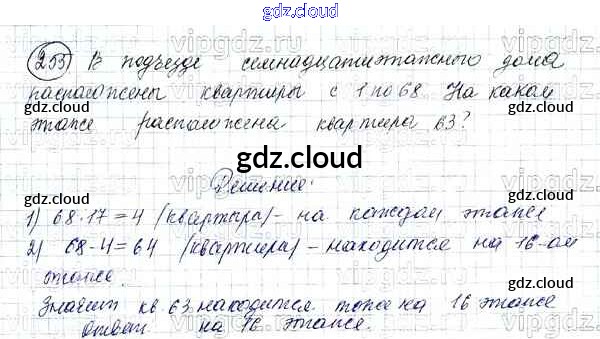 gdz.cloud
253 В подъезде семнадцатиэтажного дома
расположены квартиры с 1 по 68. На каком
этаже расположена квартира 63?
gdz.cloud
Решение:
1) 68:17=4 (квартира) - на каждом этаже
2) 68-4=64 (квартиера) - находится на 16-ом
этаже.
Значит кв. 63 находится тоже на 16 этаже
Ответ на 16 этаже.